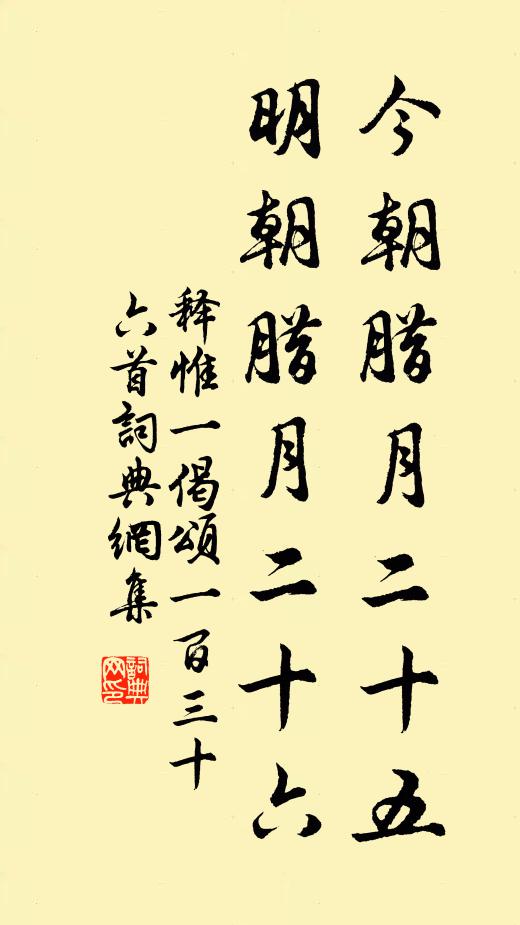 今朝腊月二十五
明朝腊月二十六
释惟一偈頌一百三十
六首詞典網集
詞典
网印